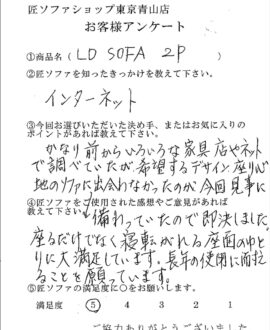 匠ソファショップ東京青山店
お客様アンケート
①商品名( LD SOFA 2P )
②匠ソファを知ったきっかけを教えて下さい。
インターネット
③今回お選びいただいた決め手、またはお気に入りの
ポイントがあれば教えて下さい。
かなり前からいろいろな家具店やネット
で調べていたが希望するデザイン座り心
地のソファに出会わなかったのが今回見事に
④匠ソファをご使用された感想やご意見があれば
教えて下さい。
備わっていたので即決しました
座るだけでなく寝転がれる座面のゆと
りに大満足しています。長年の使用に耐え
ることを願っています。
⑤匠ソファの満足度に○をお願いします。
満足度 ⑤ 4 3 2 1
ご協力ありがとうございました